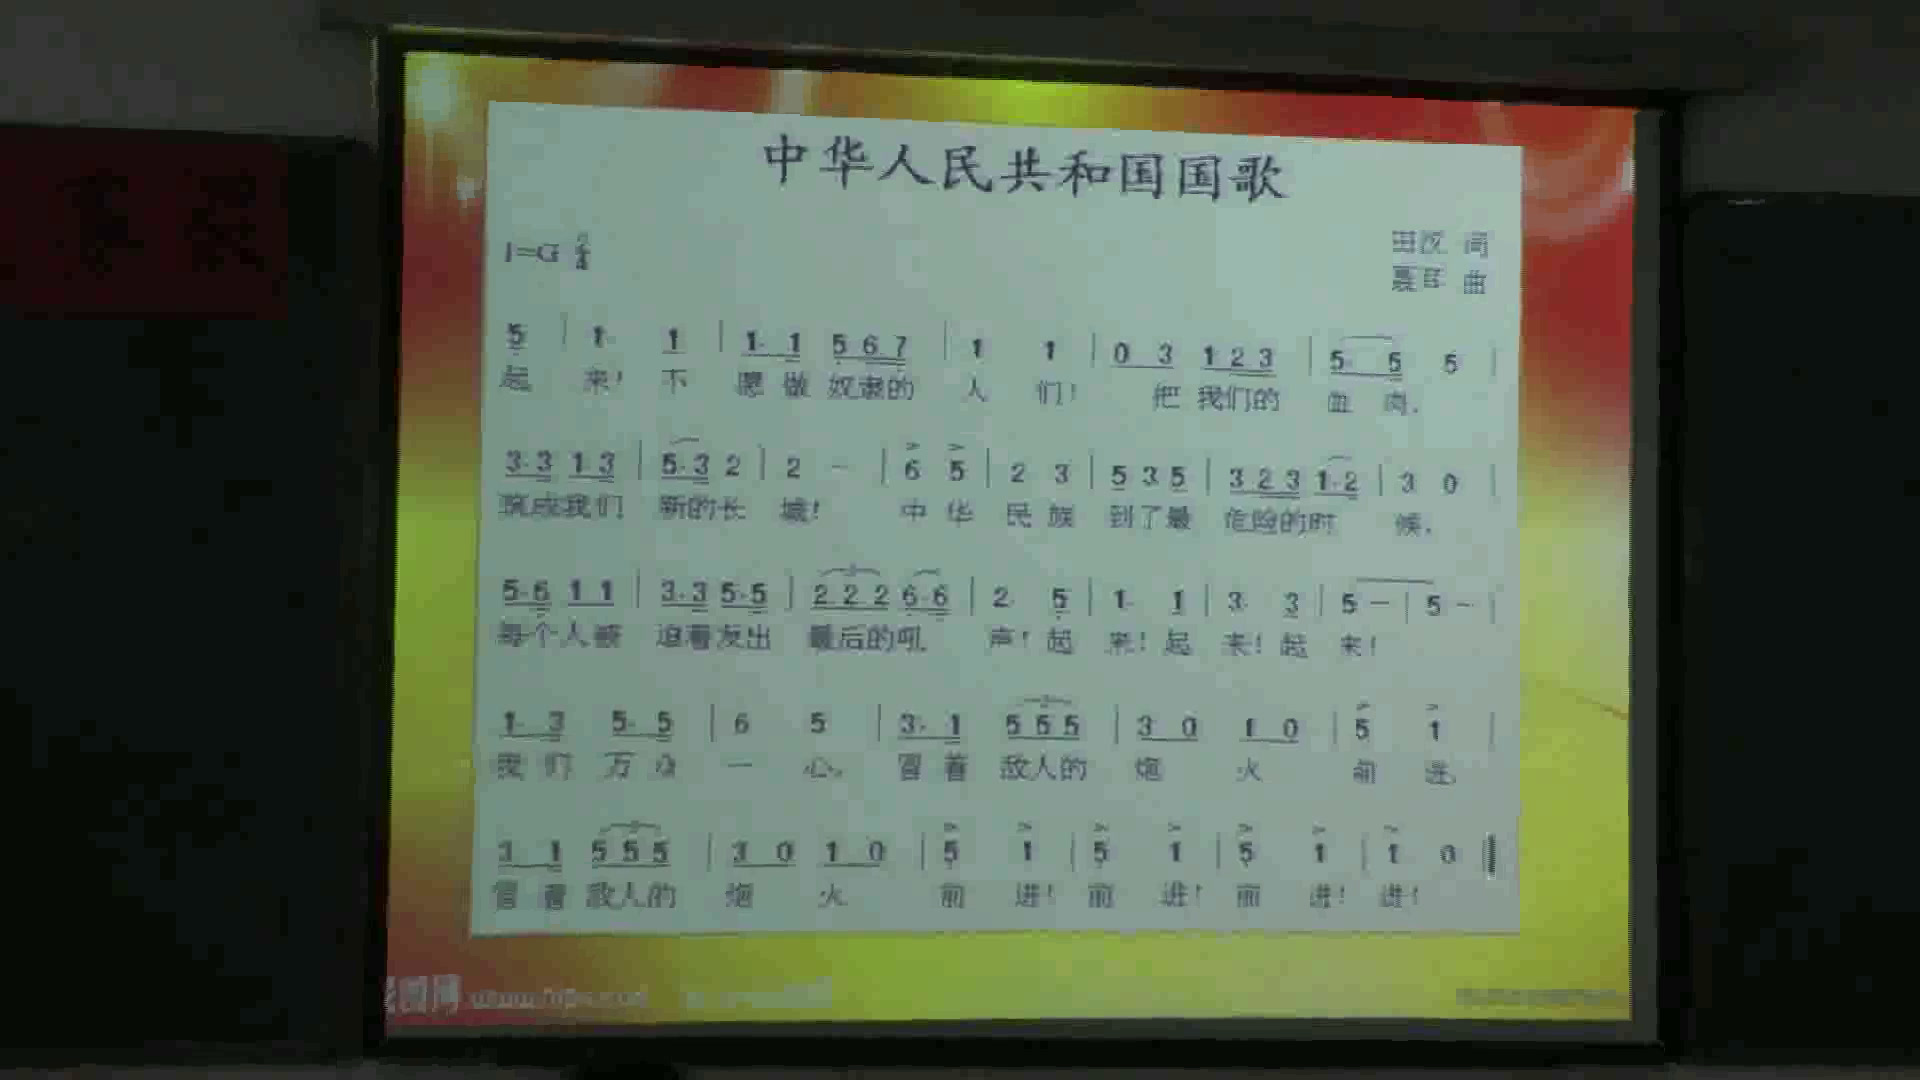 中华人民共和国国歌
1=G 2/4
田汉 词
聂耳 曲
5 | 1· 1 | 1· 1 5 6 7 | 1 1 | 0 3 1 2 3 | 5· 5 5 |
起 来! 不 愿 做 奴隶的 人 们! 把 我们的 血 肉,
3·3 1·3 | 5·3 2 | 2 - | 6 5 | 2 3 | 5 3 5 | 3 2 3 1·2 | 3 0 |
筑成我们 新的长 城! 中 华 民 族 到了最 危险的时 候,
5·6 1 1 | 3·3 5·5 | 2 2 2 6·6 | 2· 5 | 1· 1 | 3· 3 | 5 - | 5 - |
每个人被 迫着发出 最后的吼 声! 起 来! 起 来! 起 来!
1· 3 5· 5 | 6 5 | 3· 1 5 5 5 | 3 0 1 0 | 5 1 |
我 们 万 众 一 心, 冒 着 敌人的 炮 火 前 进,
3 1 5 5 5 | 3 0 1 0 | 5 1 | 5 1 | 5 1 | 1 0
冒 着 敌人的 炮 火 前 进! 前 进! 前 进! 进!